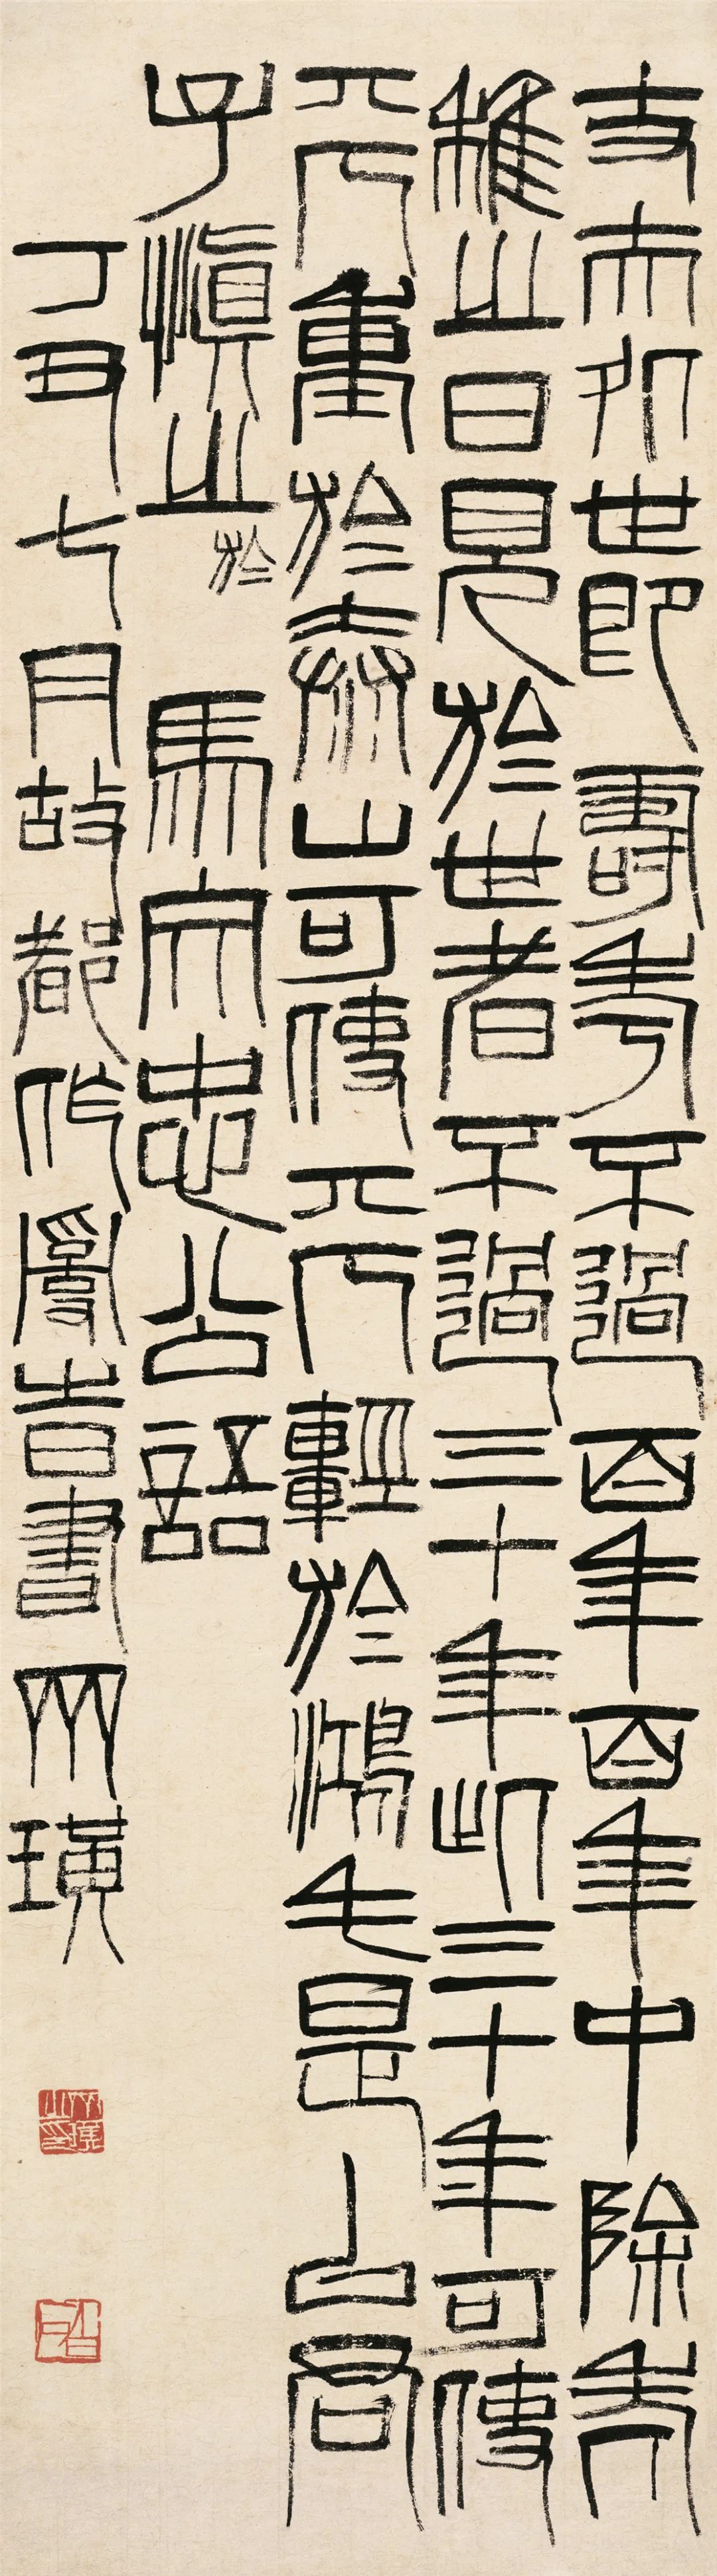 丈夫処世即壽考不過百年百年中除老
稚之日見於世者不過三十年此三十年可使
亓人重於泰山可使亓人輕於鴻毛是以君
子慎之於 馬文忠公語
丁丑七月故都作亂旹書齊璜